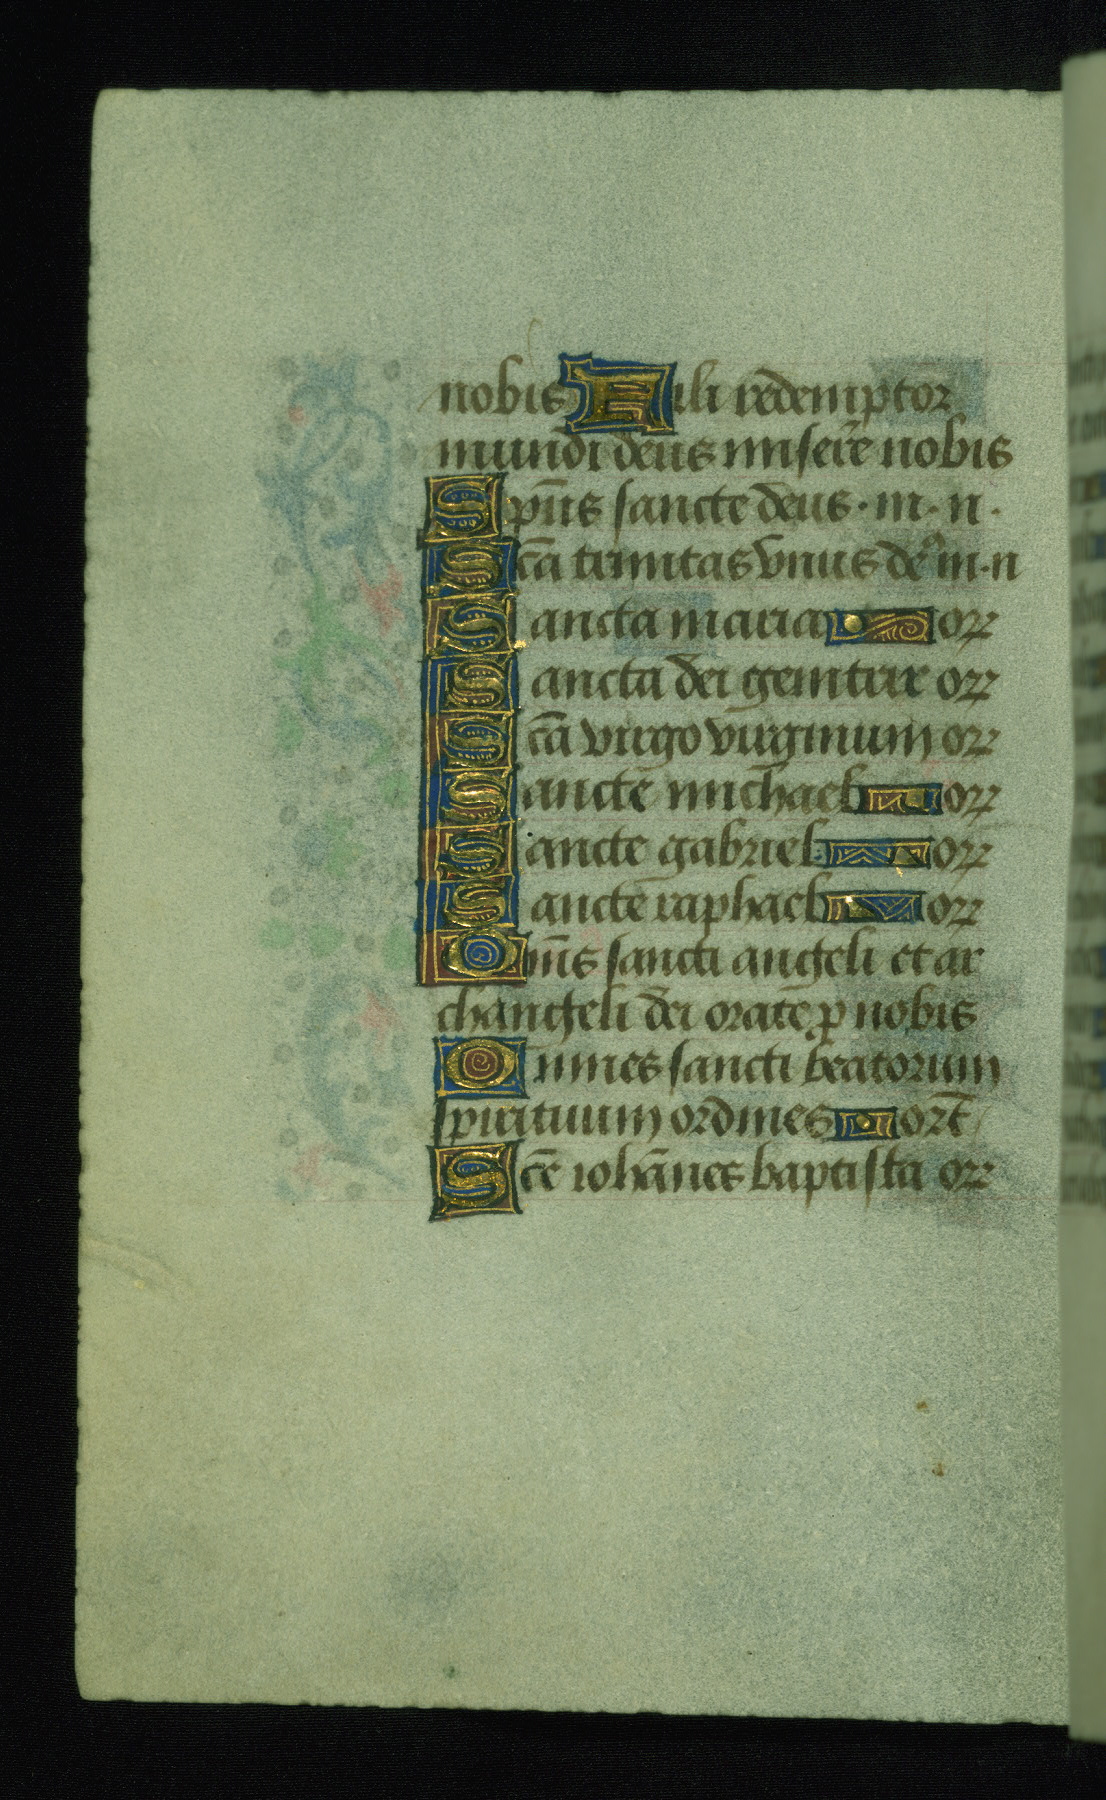 nobis Fili redemptor
mundi deus misere̅ nobis
Sp̅ns sancte deus · m · n ·
Sc̅a trinitas vnus deꝰ m · n
Sancta maria orꝛ
Sancta dei genitrix orꝛ
Sc̅a virgo virginum orꝛ
Sancte michael orꝛ
Sancte gabriel orꝛ
Sancte raphael orꝛ
Om̅s sancti angeli et ar
changeli dei orate p̱ nobis
Omnes sancti beatorum
spirituum ordines ort̅
Sc̅e ioha̅nes baptista orꝛ